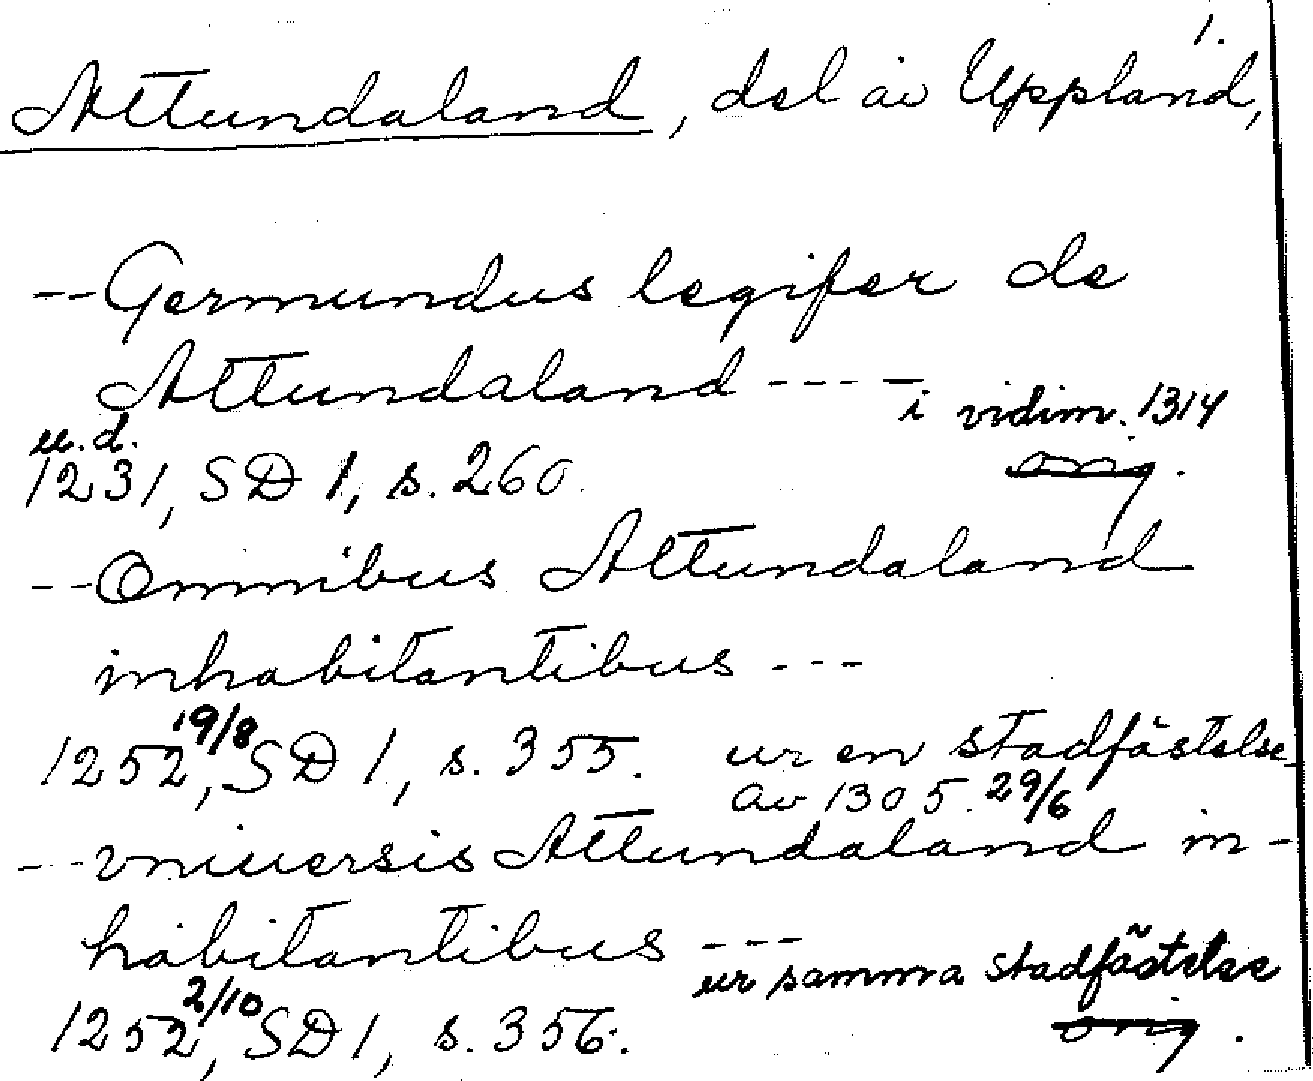 1.
Attundaland, del av Uppland,
--Germundus legifer de
Attundaland ---- i vidim. 1314
u.d.
1231, SD 1, s. 260. orig.
--Omnibus Attundaland
inhabitantibus ---
19/8
1252, SD 1, s. 355. ur en stadfästelse
av 1305. 29/6
---vniuersis Attundaland in-
habitantibus ---
ur samma stadfästelse
2/10
1252, SD 1, s. 356. orig.